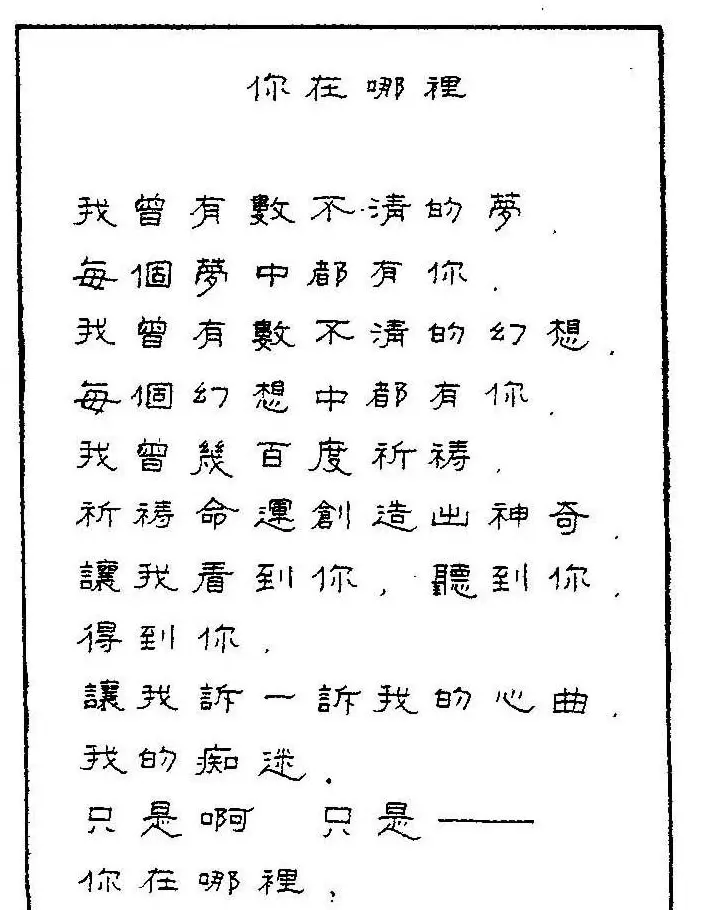 你在哪裡
我曾有數不清的夢，
每個夢中都有你，
我曾有數不清的幻想，
每個幻想中都有你，
我曾幾百度祈禱，
祈禱命運創造出神奇，
讓我看到你，聽到你，
得到你，
讓我訴一訴我的心曲，
我的痴迷．
只是啊　只是——
你在哪裡，